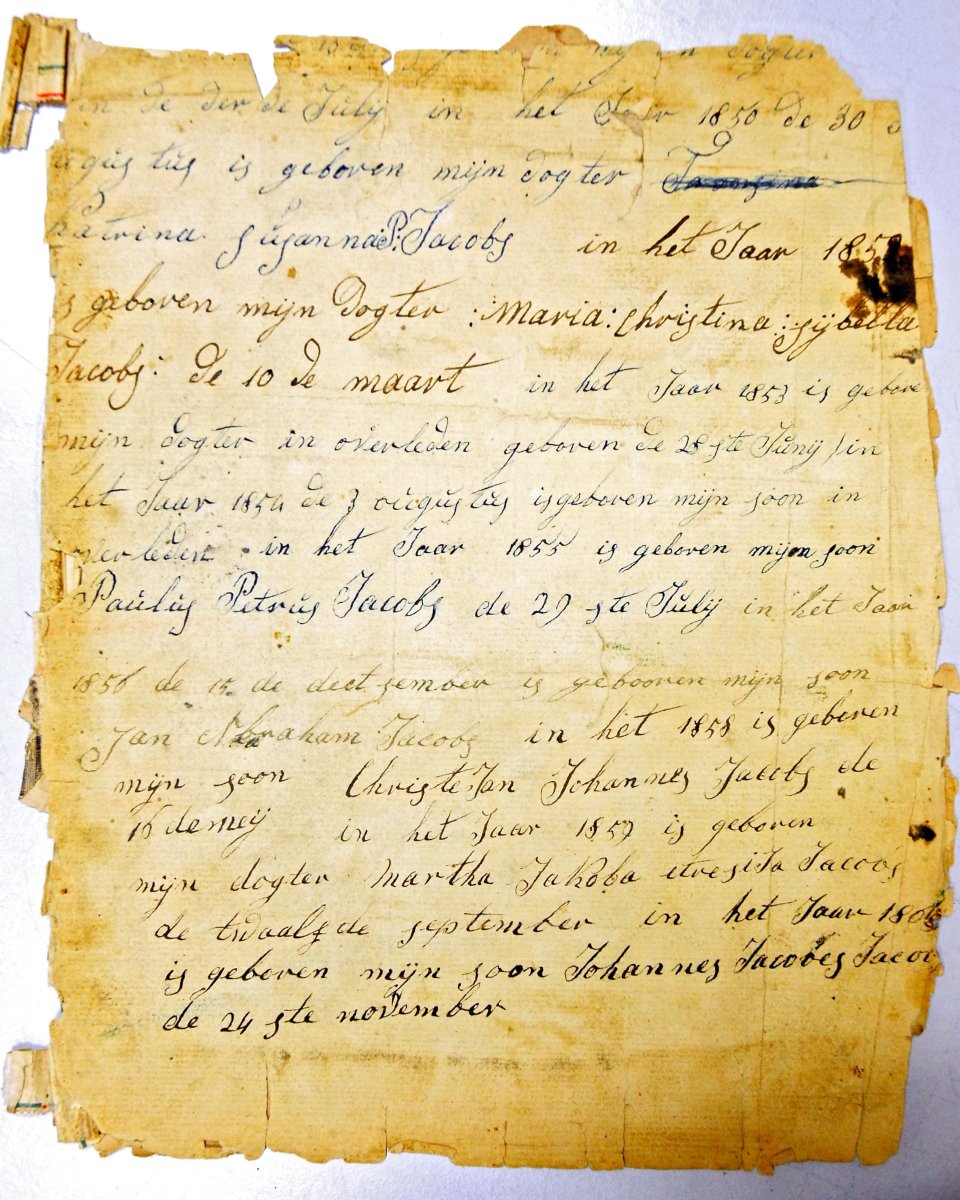 mijn dogter
in de der de Julij in het Jaar 1850 de 30
ugustus is geboren mijn dogter
Katrina Susanna P: Jacobs in het Jaar 185
is geboren mijn Dogter : Maria : Christina : sijbella
Jacobs : de 10 de maart in het Jaar 1853 is gebore
mijn dogter in overleden geboren de 28 ste Junij / in
het Jaar 1854 de 3 ougustus is geboren mijn soon in
overleden in het Jaar 1855 is geboren mijn soon
Paulus Petrus Jacobs de 29 ste Julij in het Jaar
1856 de 15 de deetsember is gebooren mijn soon
Jan Abraham Jacobs in het 1858 is geboren
mijn soon ChristeJan Johannes Jacobs de
16 de meij in het Jaar 1859 is geboren
mijn dogter Martha Jakoba etresiJa Jacobs
de twaalfde september in het Jaar 186
is geboren mijn soon Johannes Jacobes Jacob
de 24 ste november